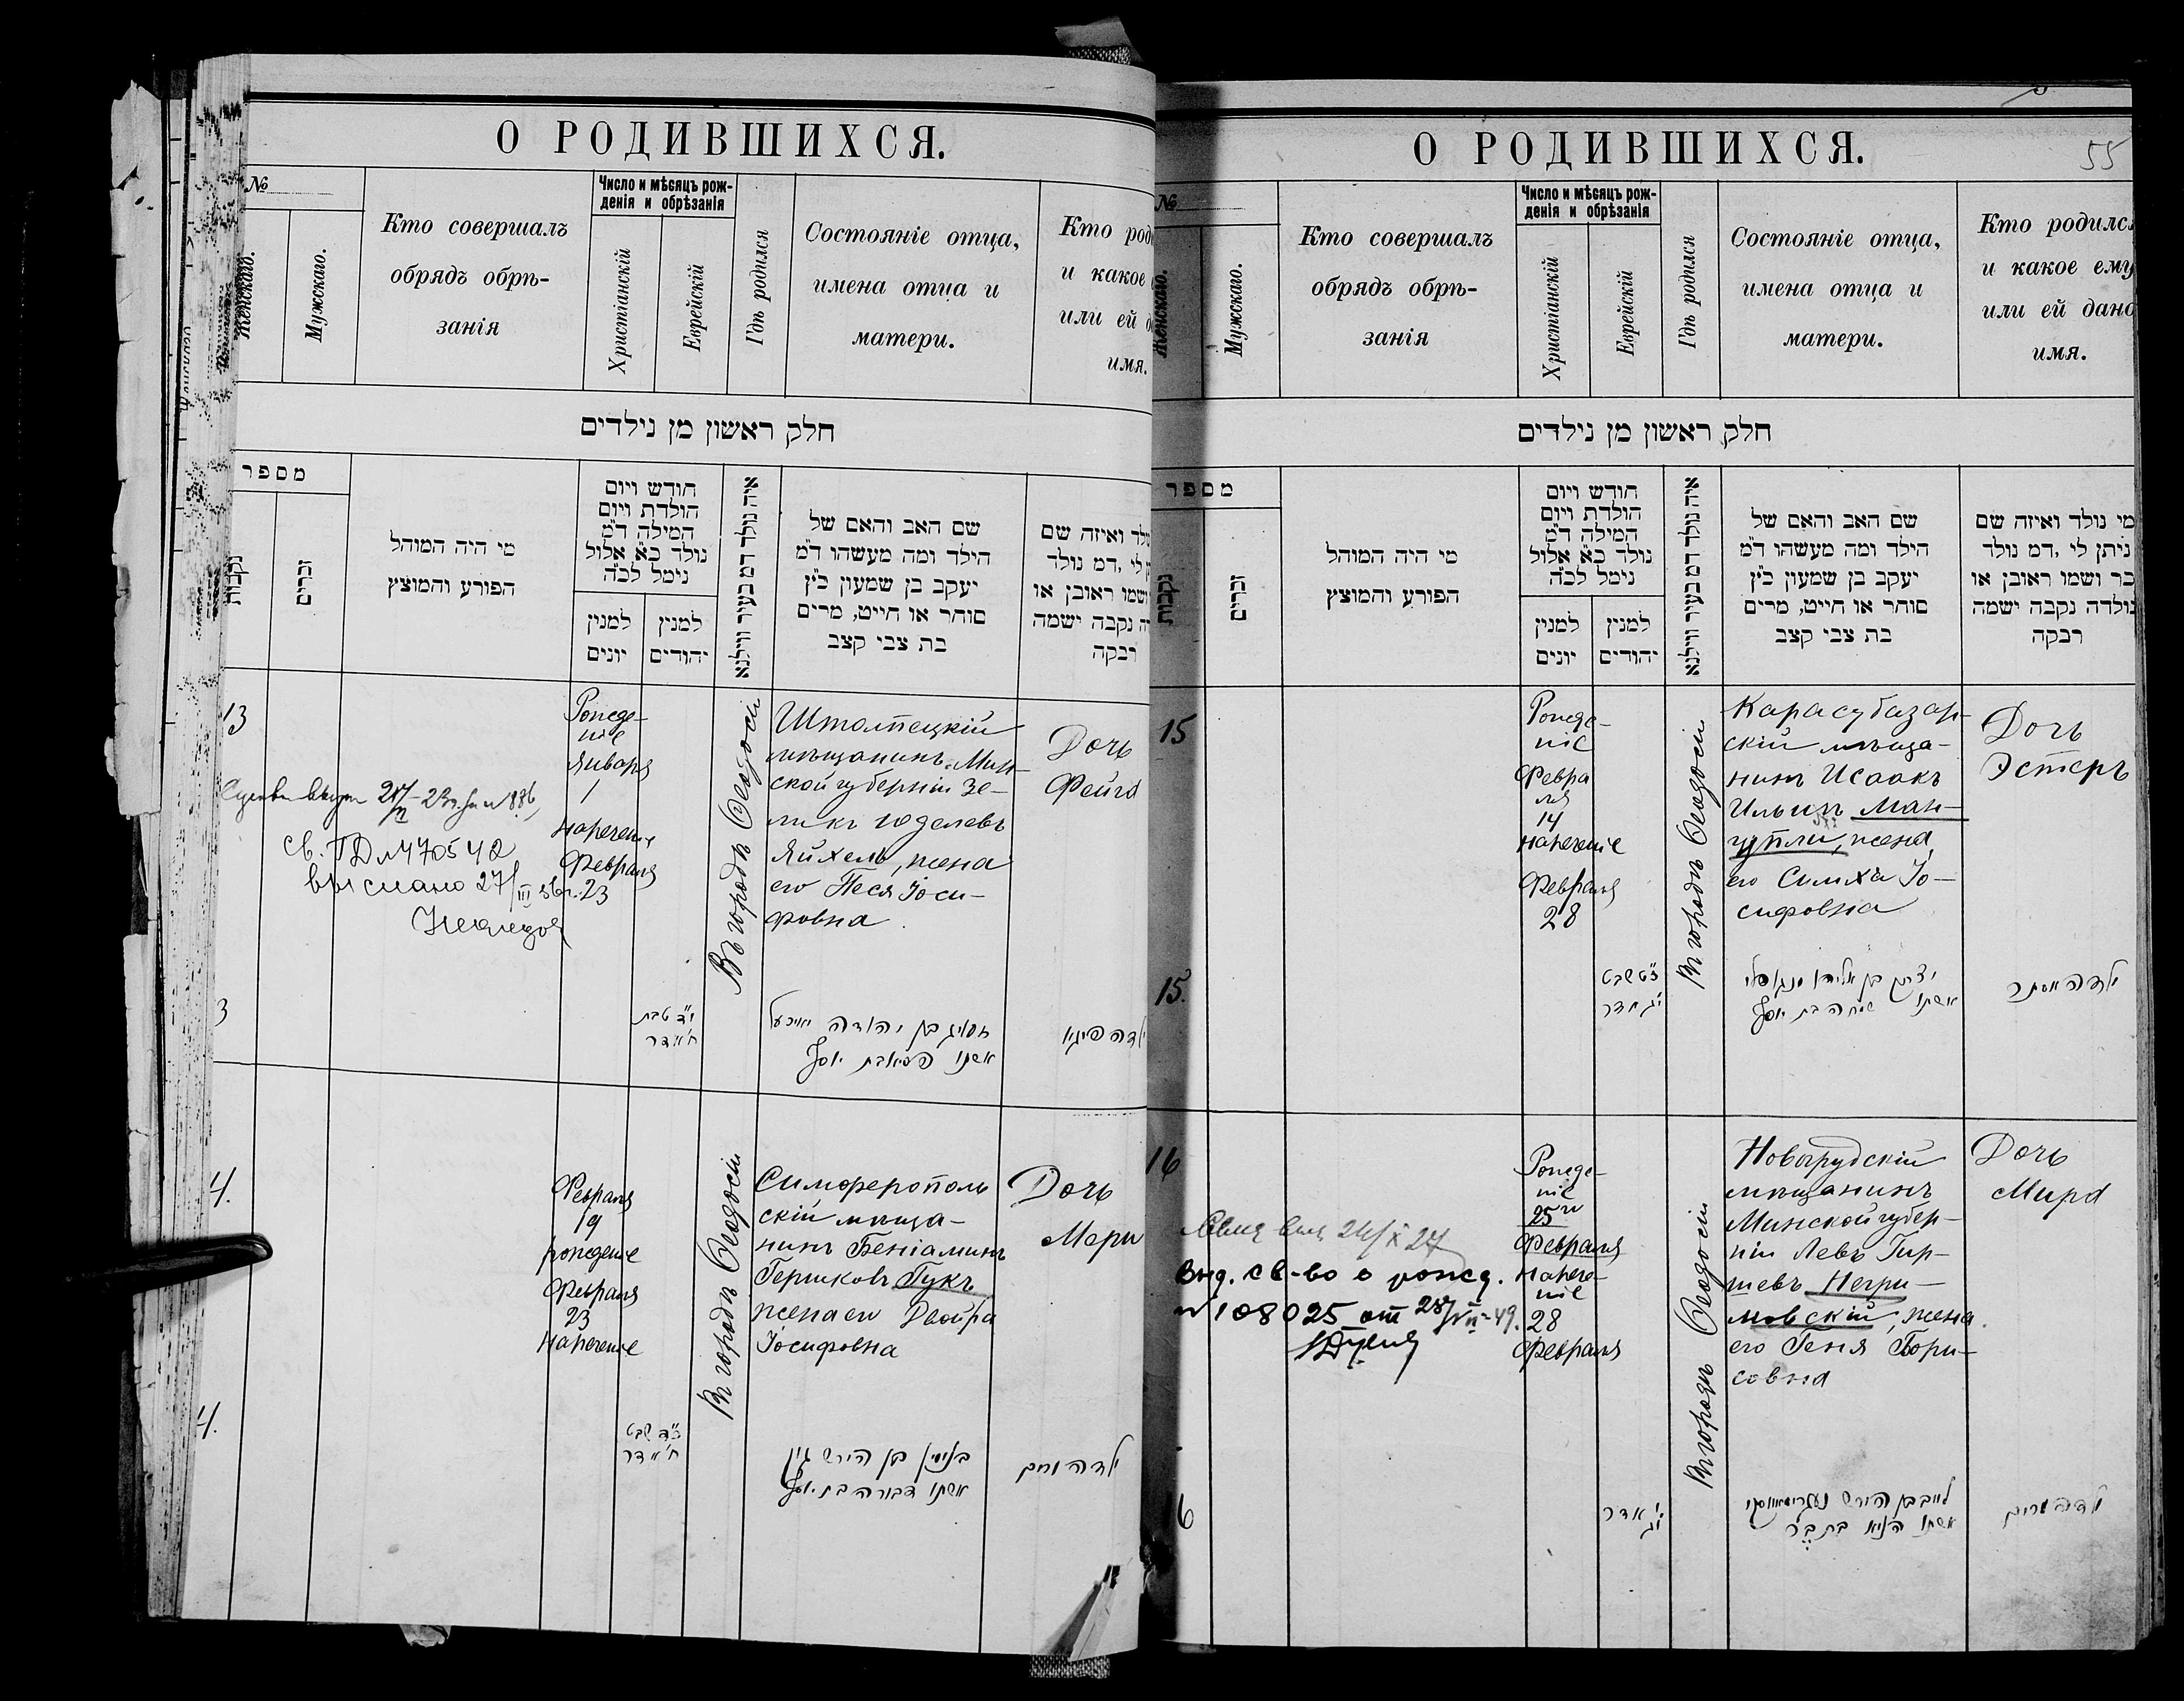 О РОДИВШИХСЯ.
№
Женскаго.
Мужскаго.
Кто совершалъ
обрядъ обрѣ-
занія
Число и мѣсяцъ рож-
денія и обрѣзанія
Христіанскій
Еврейскій
Гдѣ родился
Состояніе отца,
имена отца и
матери.
Кто род
и какое
или ей
имя.
חלק ראשון מן נילדים
מספר
נקבות
זכרים
מי היה המוהל
הפורע והמוצץ
חודש ויום
הולדת ויום
המילה ד״מ
נולד כ״א אלול
נימל לכ״ה
למנין
יונים
למנין
יהודים
איה נולד דמ בעיר ווילנא
שם האב והאם של
הילד ומה מעשהו ד״מ
יעקב בן שמעון כ״ץ
סוחר או חייט, מרים
בת צבי קצב
ולד ואיזה שם
לי, דמ נולד
ושמו ראובן או
נקבה ישמה
רבקה
13
Рожде-
ніе
Января
1
нарече́ніе
Февраля
23
Въ городѣ Ѳеодосіи
Штолпецкій
мѣщанинъ Мин-
ской губерніи Зе-
ликъ Юделевъ
Яйхель, жена
его Песя Іоси-
фовна
Дочь
Фейга
выслано 27/III
3
י״ד טבת
ח׳ אדר
בן יהודה
אשתו בת יוסף
ילדה פיגא
4.
Февраля
19
рожденіе
Февраля
23
нареченіе
Въ городѣ Ѳеодосіи
Симферополь
скій мѣща-
нинъ Беніаминъ
Гершковъ Гукъ
жена его Двойра
Іосифовна
Дочь
Мери
4.
כ״ד שבט
ח׳ אדר
בנימין בן הירש
אשתו דבורה בת יוסף
ילדה מרים
О РОДИВШИХСЯ.
55
№
Женскаго.
Мужскаго.
Кто совершалъ
обрядъ обрѣ-
занія
Число и мѣсяцъ рож-
денія и обрѣзанія
Христіанскій
Еврейскій
Гдѣ родился
Состояніе отца,
имена отца и
матери.
Кто родилс
и какое ему
или ей дано
имя.
חלק ראשון מן נילדים
מספר
נקבות
זכרים
מי היה המוהל
הפורע והמוצץ
חודש ויום
הולדת ויום
המילה ד״מ
נולד כ״א אלול
נימל לכ״ה
למנין
יונים
למנין
יהודים
איה נולד דמ בעיר ווילנא
שם האב והאם של
הילד ומה מעשהו ד״מ
יעקב בן שמעון כ״ץ
סוחר או חייט, מרים
בת צבי קצב
מי נולד ואיזה שם
ניתן לי, דמ נולד
כר ושמו ראובן או
נולדה נקבה ישמה
רבקה
15
Рожде-
ніе
Февра
ля
14
нареченіе
Февраля
28
Въ городѣ Ѳеодосіи
Карасубазар-
скій мѣща-
нинъ Исаакъ
Ильинъ Ман-
гупли, жена
его Симха Іо-
сифовна
Дочь
Эстеръ
15.
י״ט שבט
י״ג אדר
יצחק בן אליהו מנגופלי
אשתו שמחה בת יוסף
ילדה אסתר
16
Рожде-
ніе
25го
Февраля
Нарече-
ніе
28
Февраля
Выд. св-во о рожд.
№ 108025 от 28/VII-49.
Въ городѣ Ѳеодосіи
Новогрудскій
мѣщанинъ
Минской губер-
ніи Левъ Гир-
шевъ Негри-
мовскій, жена
его Геня Бори-
совна
Дочь
Мира
16
י׳ אדר
י״ג
לייב בן הירש
אשתו העניא בת
ילדה מרים